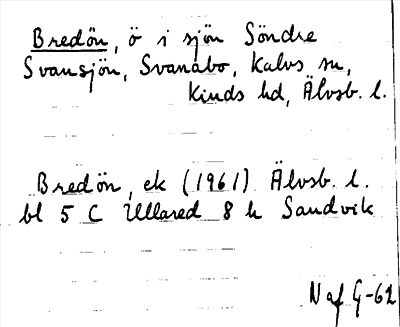 Bredön, ö i sjön Söndre
Svansjön, Svanabo, Kalvs sn,
Kinds hd, Älvsb. l.
Bredön, ek (1961) Älvsb. l.
bl 5 C Ullared 8 h Sandvik
N af G-62